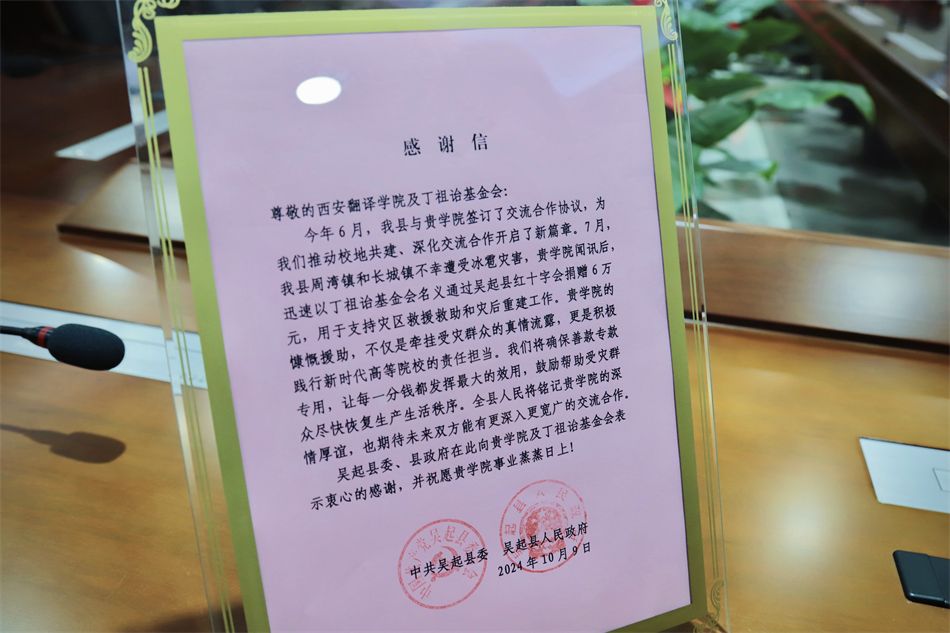 感谢信
尊敬的西安翻译学院及丁祖诒基金会：
今年6月，我县与贵学院签订了交流合作协议，为
我们推动校地共建、深化交流合作开启了新篇章。7月，
我县周湾镇和长城镇不幸遭受冰雹灾害，贵学院闻讯后，
迅速以丁祖诒基金会名义通过吴起县红十字会捐赠6万
元，用于支持灾区救援救助和灾后重建工作。贵学院的
慷慨援助，不仅是牵挂受灾群众的真情流露，更是积极
践行新时代高等院校的责任担当。我们将确保善款专款
专用，让每一分钱都发挥最大的效用，鼓励帮助受灾群
众尽快恢复生产生活秩序。全县人民将铭记贵学院的深
情厚谊，也期待未来双方能有更深入更宽广的交流合作。
吴起县委、县政府在此向贵学院及丁祖诒基金会表
示衷心的感谢，并祝愿贵学院事业蒸蒸日上！
中共吴起县委 吴起县人民政府
2024年10月9日